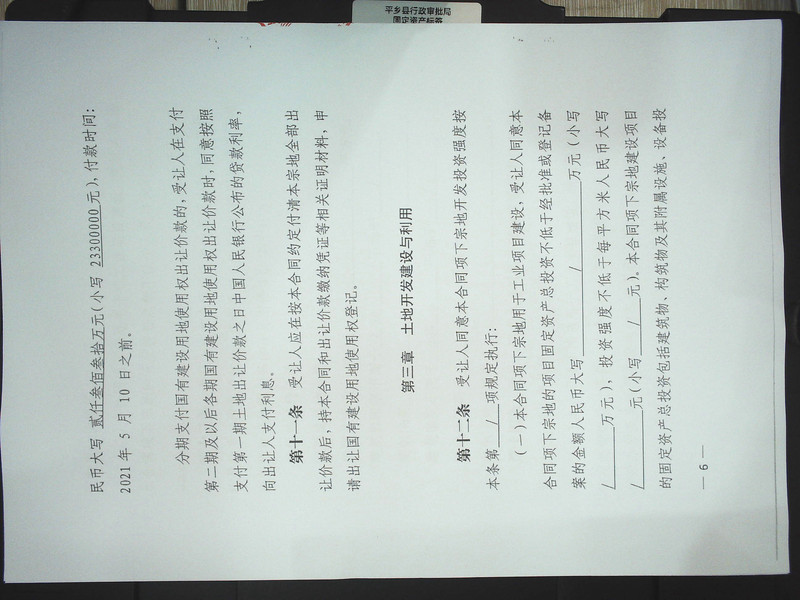 民币大写 贰仟叁佰叁拾万元(小写 23300000 元),付款时间:
2021 年 5 月 10 日之前。
分期支付国有建设用地使用权出让价款的,受让人在支付
第二期及以后各期国有建设用地使用权出让价款时,同意按照
支付第一期土地出让价款之日中国人民银行公布的贷款利率,
向出让人支付利息。
第十一条 受让人应在按本合同约定付清本宗地全部出
让价款后,持本合同和出让价款缴纳凭证等相关证明材料,申
请出让国有建设用地使用权登记。
第三章 土地开发建设与利用
第十二条 受让人同意本合同项下宗地开发投资强度按
本条第 / 项规定执行:
(一)本合同项下宗地用于工业项目建设,受让人同意本
合同项下宗地的项目固定资产总投资不低于经批准或登记备
案的金额人民币大写 / 万元(小写
/ 万元),投资强度不低于每平方米人民币大写
/ 元(小写 / 元)。本合同项下宗地建设项目
的固定资产总投资包括建筑物、构筑物及其附属设施、设备投
— 6 —